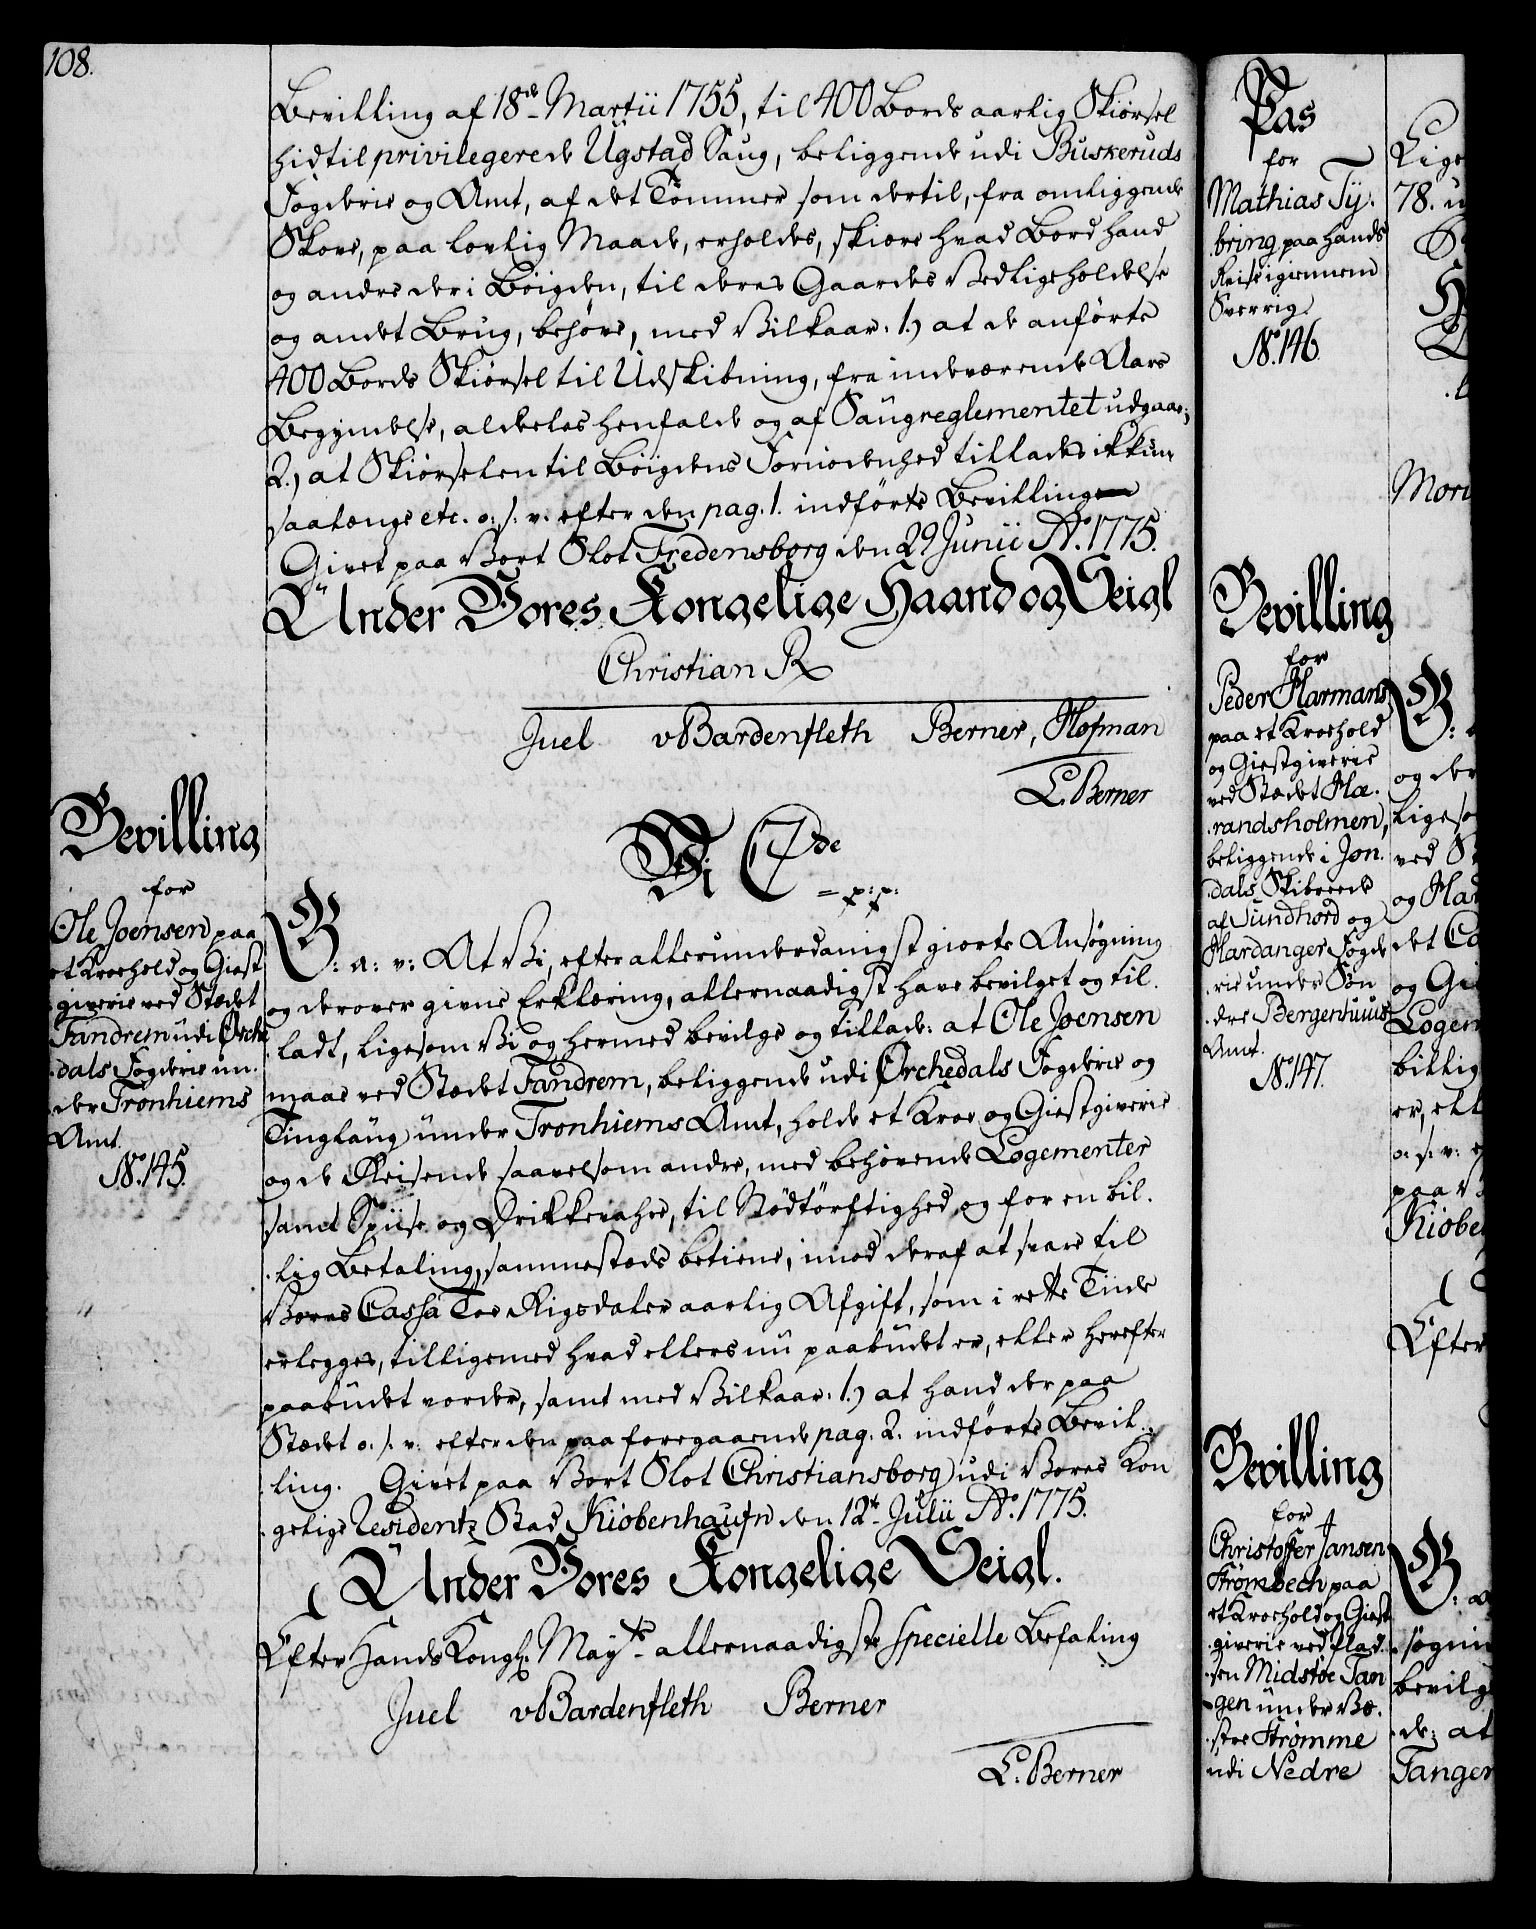 108.
Bevilling af 18de Martii 1755, til 400 Bords aarlig Skiørsel
hidtil privilegerede Ugstad Saug, beliggende udi Buskeruds
Fogderie og Amt, af det Tømmer som dertil, fra omliggende
Skove, paa lovlig Maade, erholdes, skiære hvad Bord hand
og andre der i Bøigden, til deres Gaardes Vedligeholdelse
og andet Brug, behøve, med Vilkaar: 1.) at de anførte
400 Bords Skiørsel til Udskibning, fra indeværende Aars
Begyndelse, aldeles henfalde og af Saugreglementet udgaae;
2.) at Skiørselen til Bøigdens Fornødenhed tillades ikkun
saalænge etc. o: s: v: efter den pag. 1. indførte Bevilling
Givet paa Vort Slot Fredensborg den 29 Junii Ao. 1775.
Under Vores Kongelige Haand og Seigl
Christian R
Juel vBardenfleth Berner, Hofman
L. Berner
Bevilling
for
Ole Joensen paa
et Kroehold og Giest
giverie ved Stædet
Fandrem udi Orche
dals Fogderie un-
der Tronhiems
Amt.
No. 145.
Vi C 7de
= p: p:
G: a: v: At Vi, efter allerunderdanigst giorte Ansøgning
og derover givne Erklæring, allernaadigst have bevilget og til-
ladt, ligesom Vi og hermed bevilge og tillade: at Ole Joensen
maae ved Stædet Fandrem, beliggende udi Orchedals Fogderie og
Tinglaug under Tronhiems Amt, holde et Kroe og Giestgiverie
og de Reisende saavelsom andre, med behøvende Logementer
samt Spiise og Drikkevahre, til Nødtørftighed og for en bil-
lig Betaling, sammestæds betiene, imod deraf at svare til
Vores Cassa Toe Rigsdaler aarlig Afgift, som i rette Tiide
erlegges, tilligemed hvad ellers nu paabudet er, eller herefter
paabudet vorder, samt med Vilkaar: 1.) at hand der paa
Stædet o: s: v: efter den paa foregaaende pag. 2. indførte Bevil-
ling. Givet paa Vort Slot Christiansborg udi Vores Kon
gelige Residentz Stad Kiøbenhaufn den 12te Julii Ao. 1775.
Under Vores Kongelige Seigl.
Efter Hands Kongl. Mayts allernaadigste specielle Befaling
Juel vBardenfleth Berner
L. Berner
Pas
for
Mathias Ty-
bring paa hands
Reise igiennem
Sverrig
No. 146.
Bevilling
for
Peder Harmans
paa et Kroehold
og Giestgiverie
ved Stædet Hæ-
randsholmen,
beliggende i Jon-
dals Skibrede
af Sundhord og
Hardanger Fogde
rie under Søn
dre Bergenhuus
Amt.
No. 147.
Bevilling
for
Christoffer Jansen
Strømbech paa
et Kroehold og Giest
giverie ved Plad-
sen Midstøe Tan
gen under Væ-
stre Strømme
udi Nedre
78.
og der
ligeso
ved
og Har
det
og Gi
Logem
billig
er, ell
o: s: v:
paa
Kiøbe
Efter
G:
søgni
bevilg
de: at
Tangen